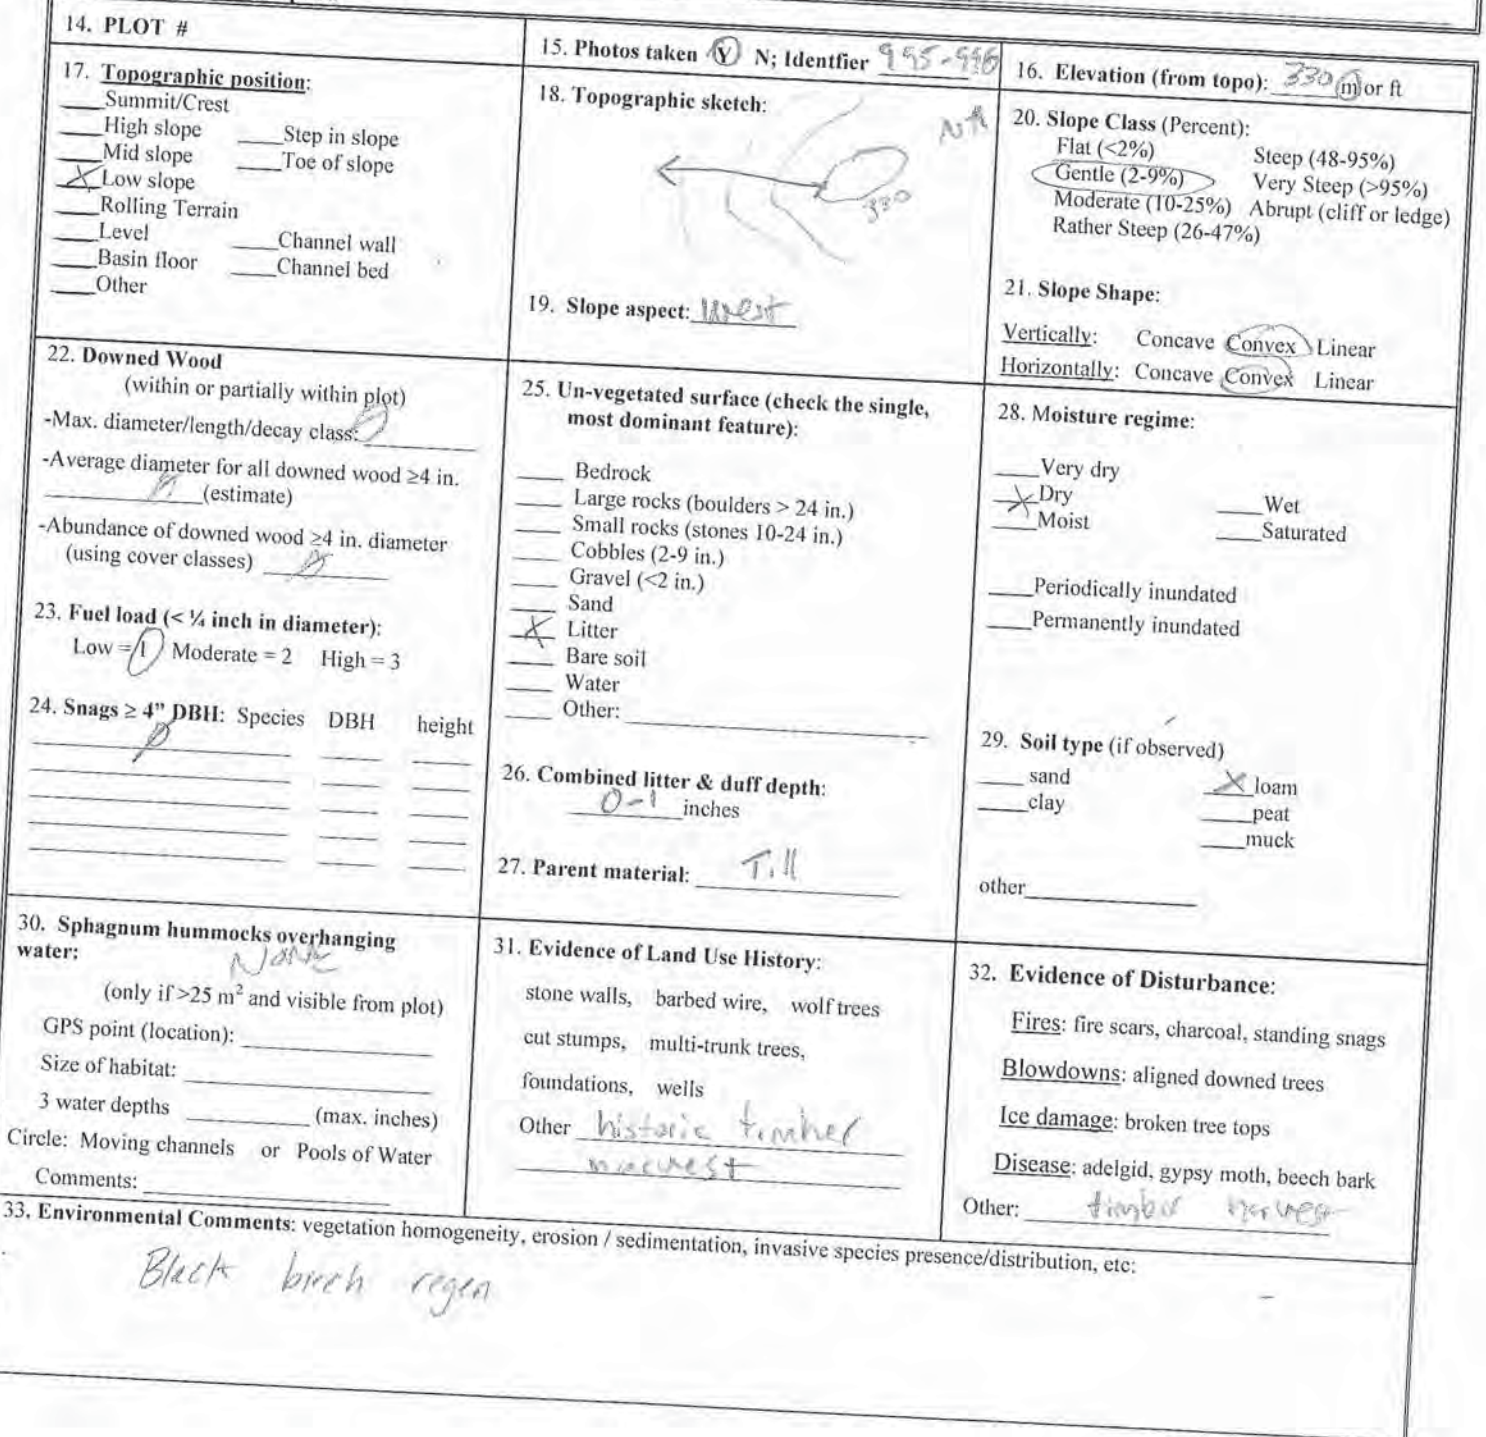 14. PLOT #
15. Photos taken Y N; Identfier 995-996
16. Elevation (from topo): 330 m or ft
17. Topographic position:
___Summit/Crest
___High slope ___Step in slope
___Mid slope ___Toe of slope
_X_Low slope
___Rolling Terrain
___Level ___Channel wall
___Basin floor ___Channel bed
___Other
18. Topographic sketch:
N↑
330
19. Slope aspect: West
20. Slope Class (Percent):
Flat (<2%) Steep (48-95%)
Gentle (2-9%) Very Steep (>95%)
Moderate (10-25%) Abrupt (cliff or ledge)
Rather Steep (26-47%)
21. Slope Shape:
Vertically: Concave Convex Linear
Horizontally: Concave Convex Linear
22. Downed Wood
(within or partially within plot)
-Max. diameter/length/decay class: Ø
-Average diameter for all downed wood ≥4 in.
Ø (estimate)
-Abundance of downed wood ≥4 in. diameter
(using cover classes) Ø
23. Fuel load (< ¼ inch in diameter):
Low = 1 Moderate = 2 High = 3
24. Snags ≥ 4" DBH: Species DBH height
Ø
25. Un-vegetated surface (check the single,
most dominant feature):
___ Bedrock
___ Large rocks (boulders > 24 in.)
___ Small rocks (stones 10-24 in.)
___ Cobbles (2-9 in.)
___ Gravel (<2 in.)
___ Sand
_X_ Litter
___ Bare soil
___ Water
___ Other: ___
26. Combined litter & duff depth:
0-1 inches
27. Parent material: Till
28. Moisture regime:
___Very dry
_X_Dry ___Wet
___Moist ___Saturated
___Periodically inundated
___Permanently inundated
29. Soil type (if observed)
___ sand _X_loam
___clay ___peat
___muck
other___
30. Sphagnum hummocks overhanging
water: None
(only if >25 m² and visible from plot)
GPS point (location): ___
Size of habitat: ___
3 water depths ___ (max. inches)
Circle: Moving channels or Pools of Water
Comments: ___
31. Evidence of Land Use History:
stone walls, barbed wire, wolf trees
cut stumps, multi-trunk trees,
foundations, wells
Other historic timber
harvest
32. Evidence of Disturbance:
Fires: fire scars, charcoal, standing snags
Blowdowns: aligned downed trees
Ice damage: broken tree tops
Disease: adelgid, gypsy moth, beech bark
Other: timber harvest
33. Environmental Comments: vegetation homogeneity, erosion / sedimentation, invasive species presence/distribution, etc:
Black birch regen